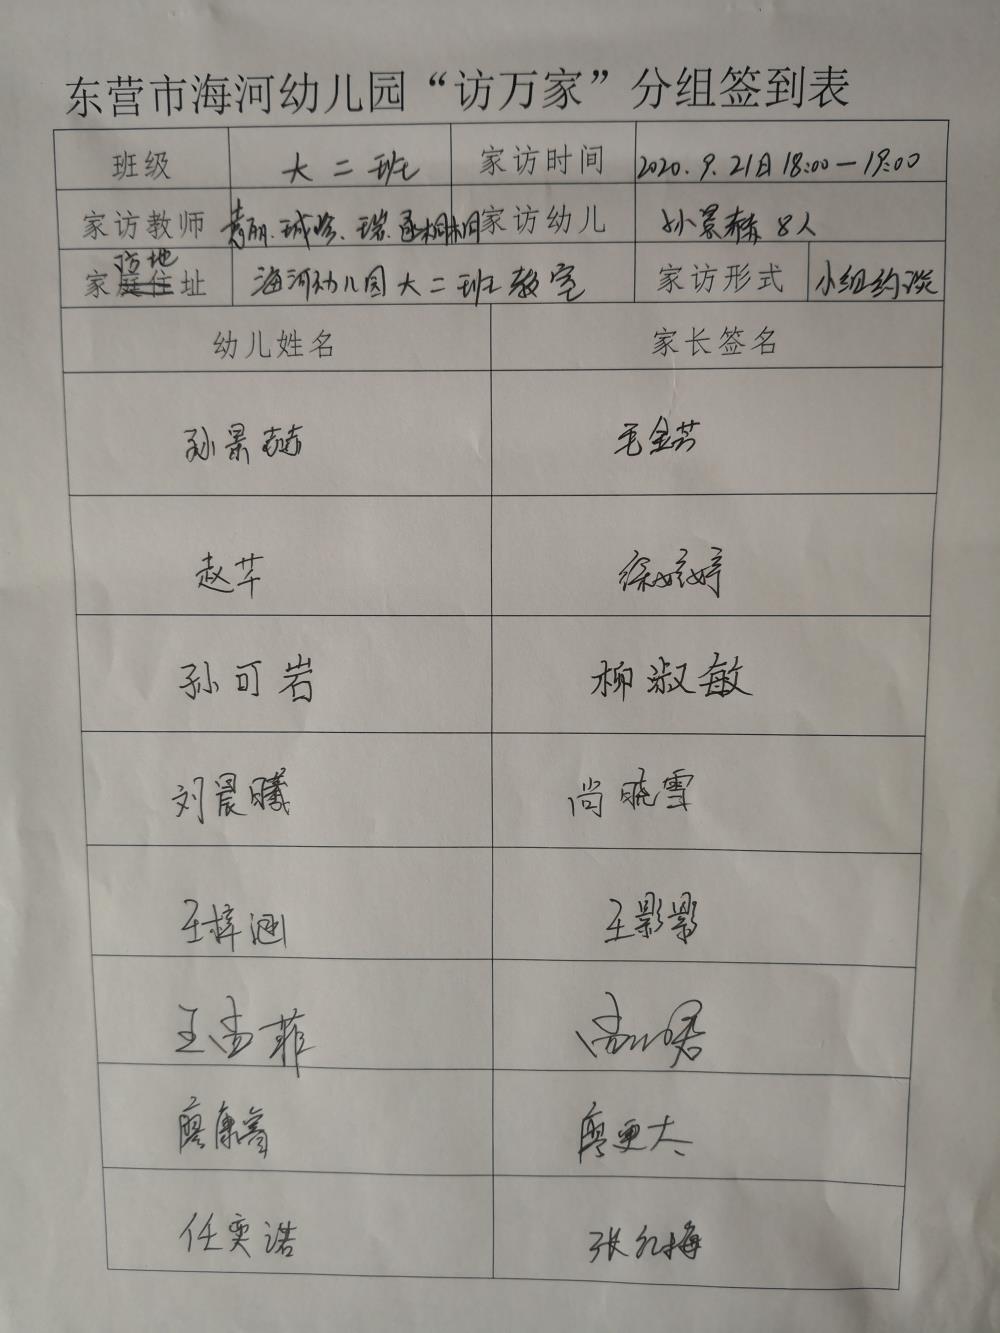 东营市海河幼儿园“访万家”分组签到表
班级 大二班 家访时间 2020.9.21日18:00—19:00
家访教师 家访幼儿 孙景赫8人
访地
家庭住址 海河幼儿园大二班教室 家访形式 小组约谈
幼儿姓名 家长签名
孙景赫 毛金芸
赵芊 徐婷婷
孙可岩 柳淑敏
刘晨曦 尚晓雪
王梓涵 王影影
王孟菲
廖康睿 廖更太
任奕诺 张红梅